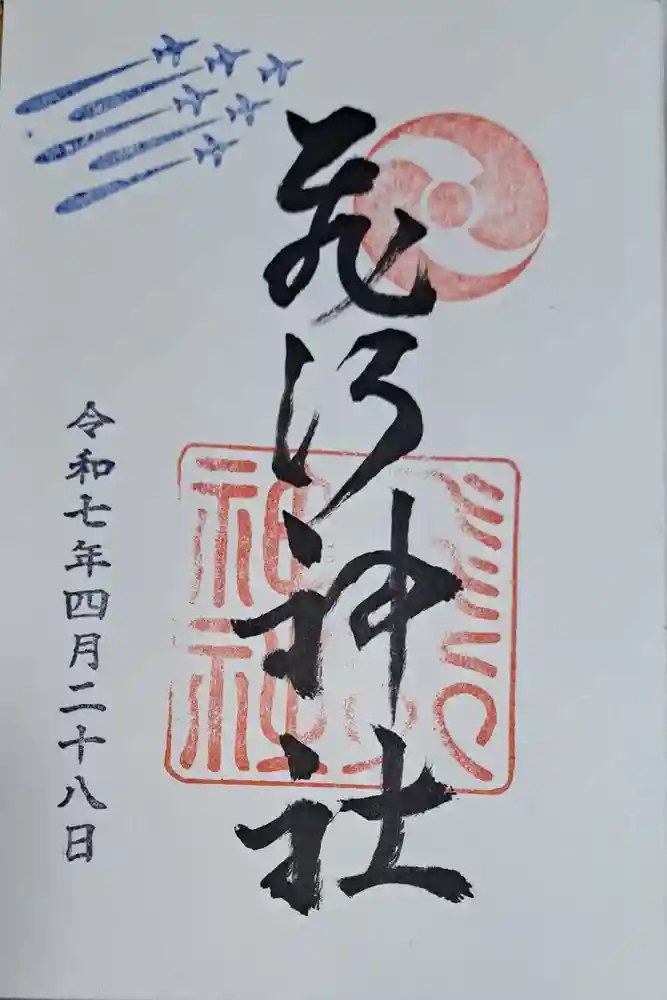 飛行神社
飛行
神社
令和七年四月二十八日